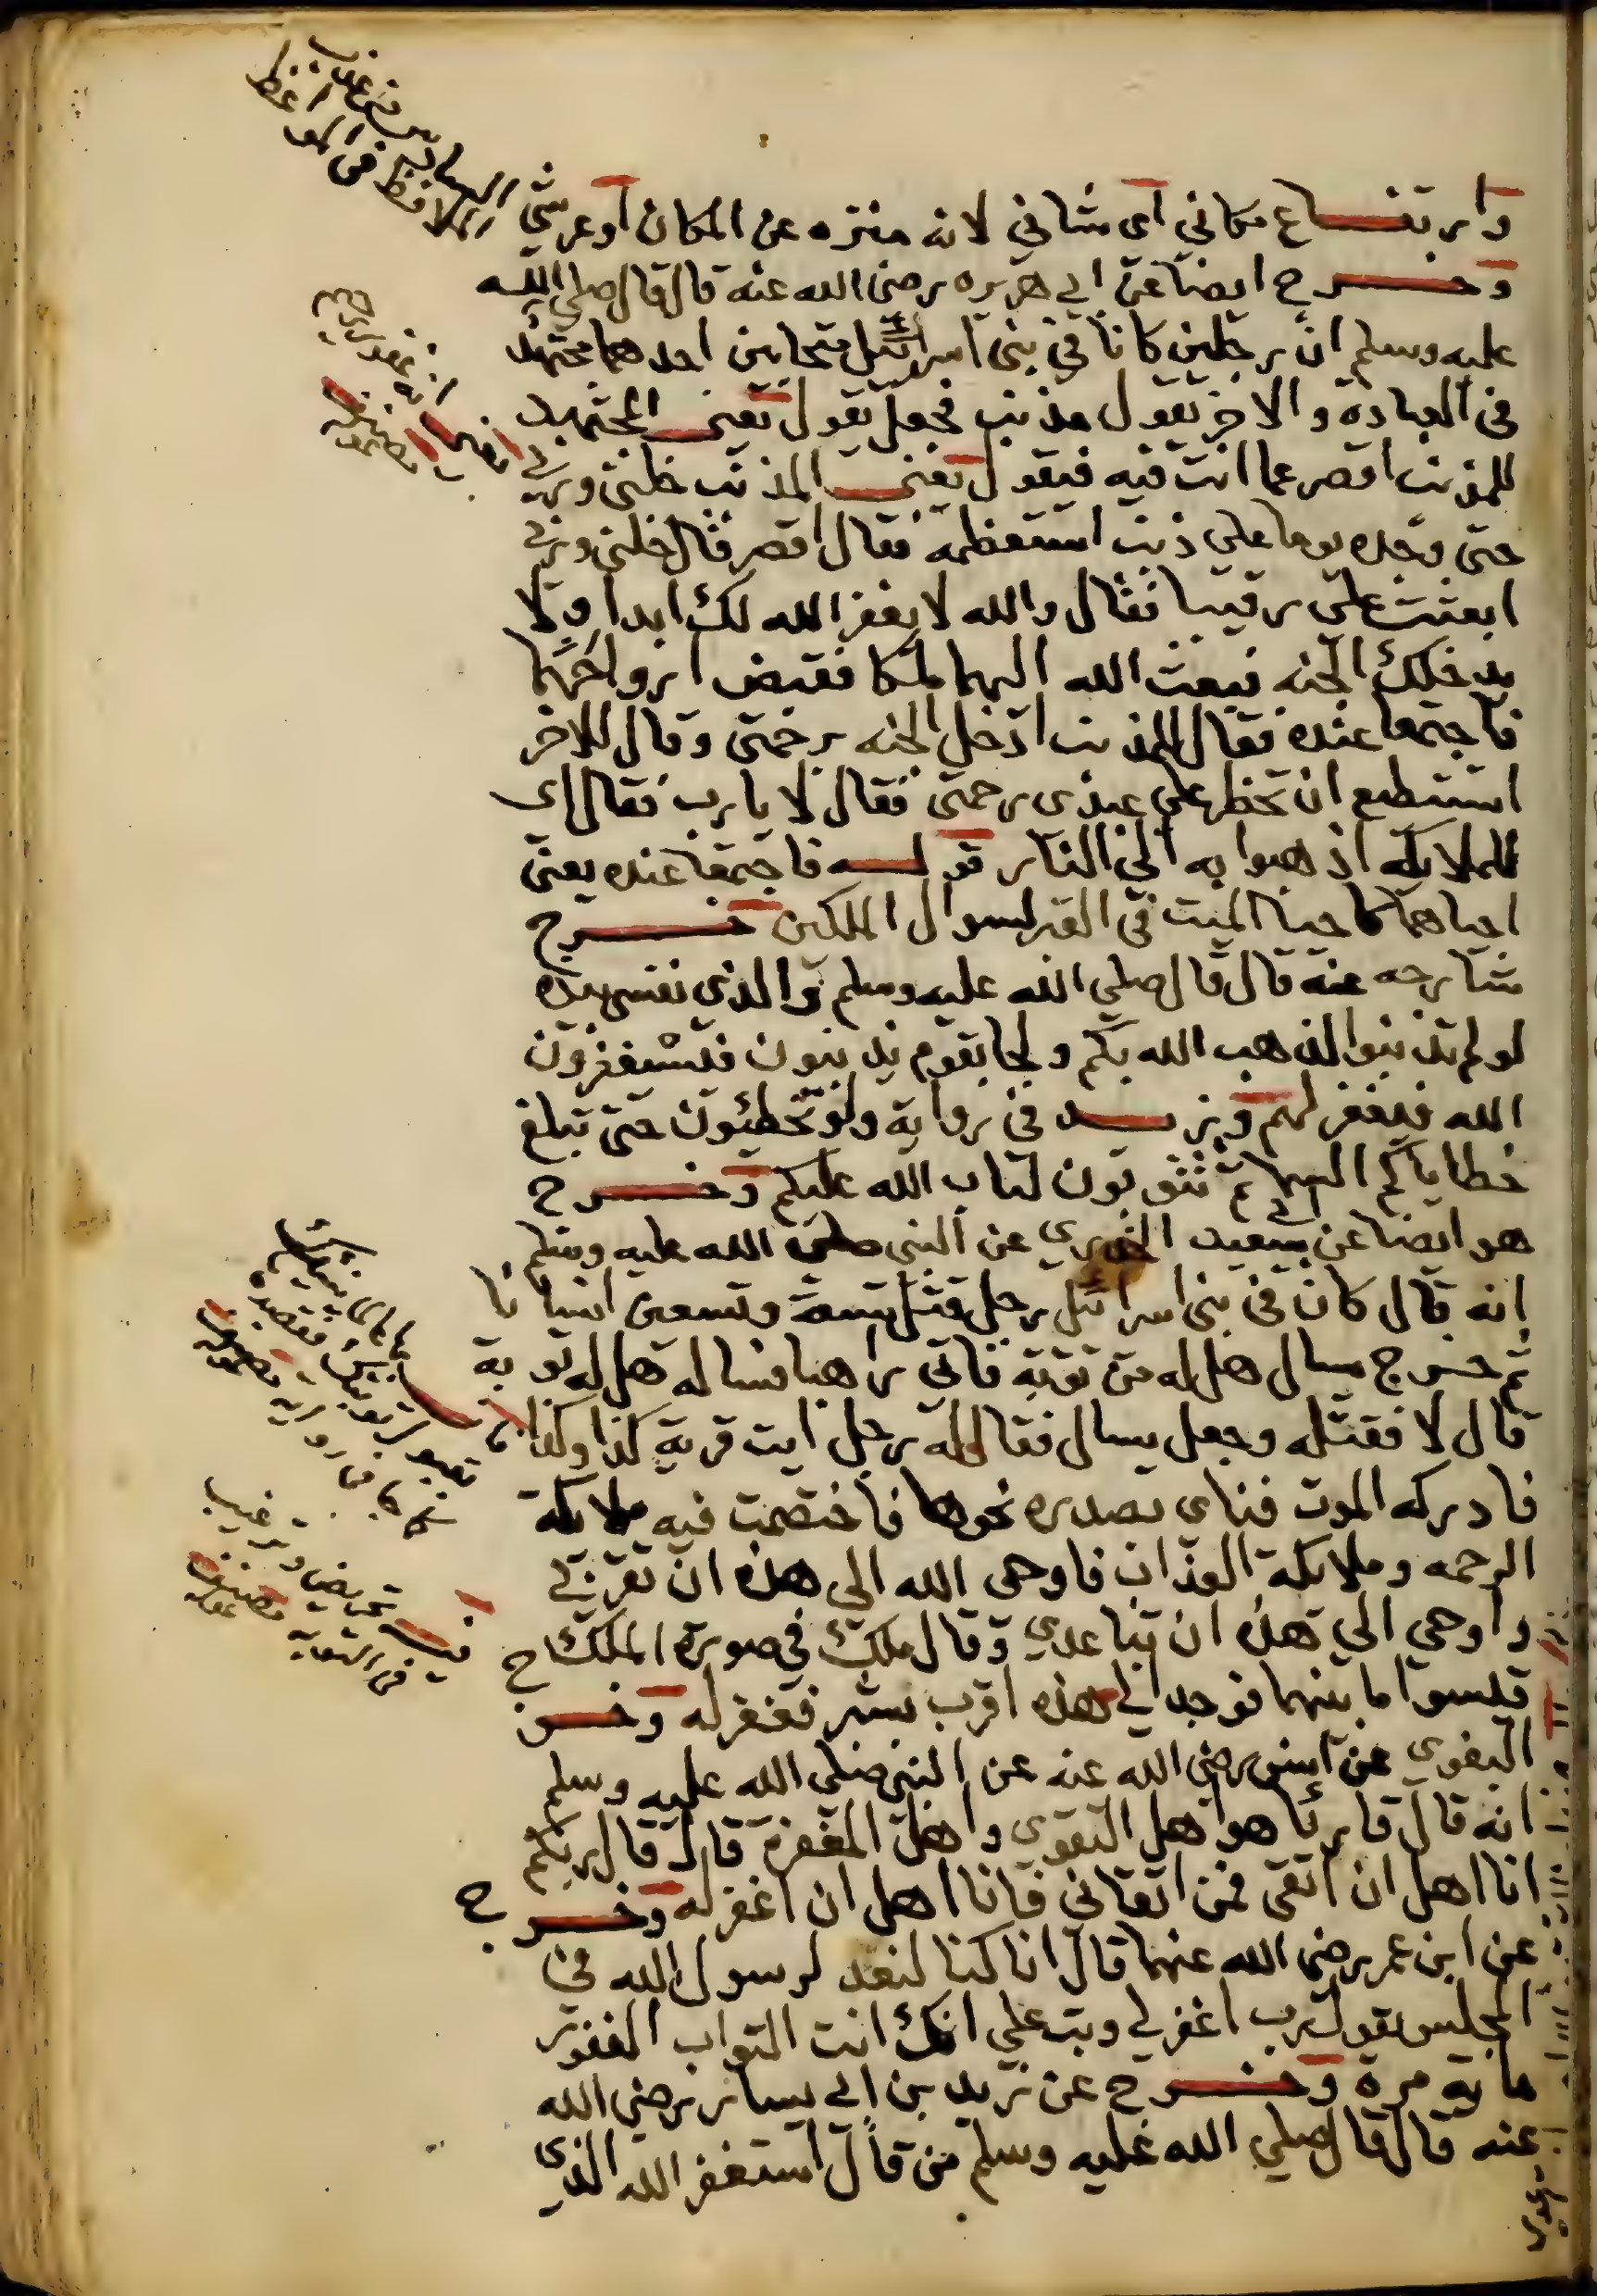 وارتفاع مكاني اى شاني لانه منزه عن المكان او عرشي
وخرج ايضا عن ابي هريره رضى الله عنه قال قال صلي الله
عليه وسلم ان رجلين كانا في بنى اسرائيل متحابين احدهما مجتهد
فى العبادة والاخر يقول مذنب فجعل يقول يعنى المجتهد
للمذنب اقصر عما انت فيه فيقول يعنى المذنب خلنى وربي
حتى وجده يوما على ذنب استعظمه فقال اقصر قال خلنى وربي
ابعثت على رقيبا فقال والله لا يغفر الله لك ابدا ولا
يدخلك الجنه فبعث الله اليهما ملكا فقبض ارواحهما
فاجتمعا عنده فقال للمذنب ادخل الجنه برحمتى وقال للاخر
اتستطيع ان تحظر على عبدى رحمتى فقال لا يا رب فقال اى
للملايكه اذهبوا به الى النار قوله فاجتمعا عنده يعنى
احياهما كاحيا الميت فى القبر لسوال الملكين خرج
شارحه عنه قال قال صلي الله عليه وسلم والذي نفسي بيده
لو لم تذنبوا لذهب الله بكم ولجا بقوم يذنبون فيستغفرون
الله فيغفر لهم وزيد فى رواية ولو تخطئون حتى تبلغ
خطاياكم السما ثم تتوبون لتاب الله عليكم وخرج
هو ايضا عن ابي سعيد الخدري عن النبى صلى الله عليه وسلم
انه قال كان فى بنى اسرائيل رجل قتل تسعة وتسعين انسانا
ثم خرج يسال هل له من توبة فاتى راهبا فساله هل له توبة
قال لا فقتله وجعل يسال فقال له رجل ايت قرية كذا وكذا
فادركه الموت فناى بصدره نحوها فاختصمت فيه ملايكة
الرحمه وملايكة العذاب فاوحى الله الى هذه ان تقربي
واوحي الي هذه ان تباعدي وقال ملك في صورة الملك
قيسوا ما بينهما فوجد الي هذه اقرب بشبر فغفر له وخرج
البغوي عن انس رضي الله عنه عن النبى صلى الله عليه وسلم
انه قال قارئا هو اهل التقوي واهل المغفرة قال قال ربكم
انا اهل ان اتقى فمن اتقانى فانا اهل ان اغفر له وخرج
عن ابن عمر رضى الله عنهما قال انا كنا لنعد لرسول الله فى
المجلس يقول رب اغفر لي وتب علي انك انت التواب الغفور
ماية مرة وخرج عن زيد بن ابي يسار رضي الله
عنه قال قال صلي الله عليه وسلم من قال استغفر الله الذي